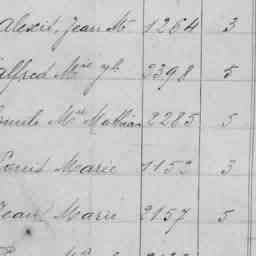 Alexis Jean M 1264 3
Alfred M 2398 5
M Mathian 2285 5
Louis Marie 1153 3
Jean Marie 2157 5